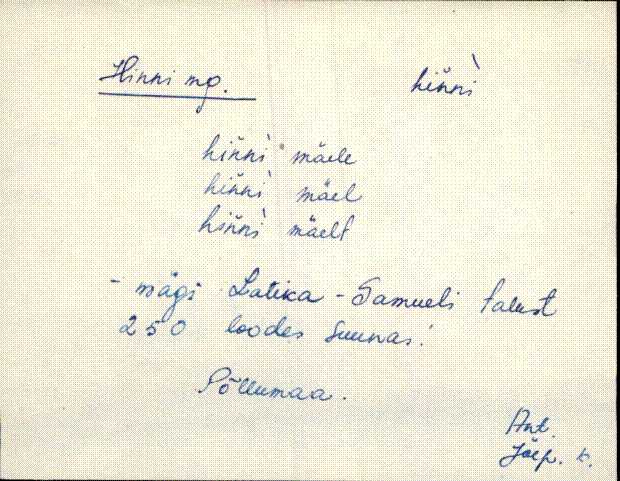 Hinni mg. hiňnì
hiňnì mäele
hiňnì mäel
hiňnì mäelt
- mägi Latika - Samueli talust
250 loodes suunas.
Põllumaa.
Ant.
Jõep. k.